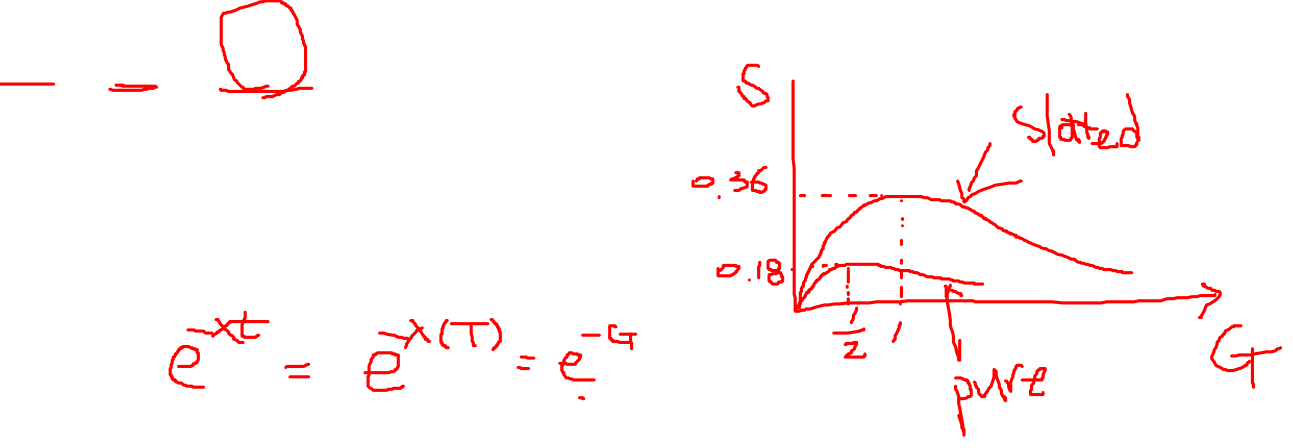 S
slotted
0.36
0.18
1/2 1
G
pure
e^{-λt} = e^{-λ(T)} = e^{-G}